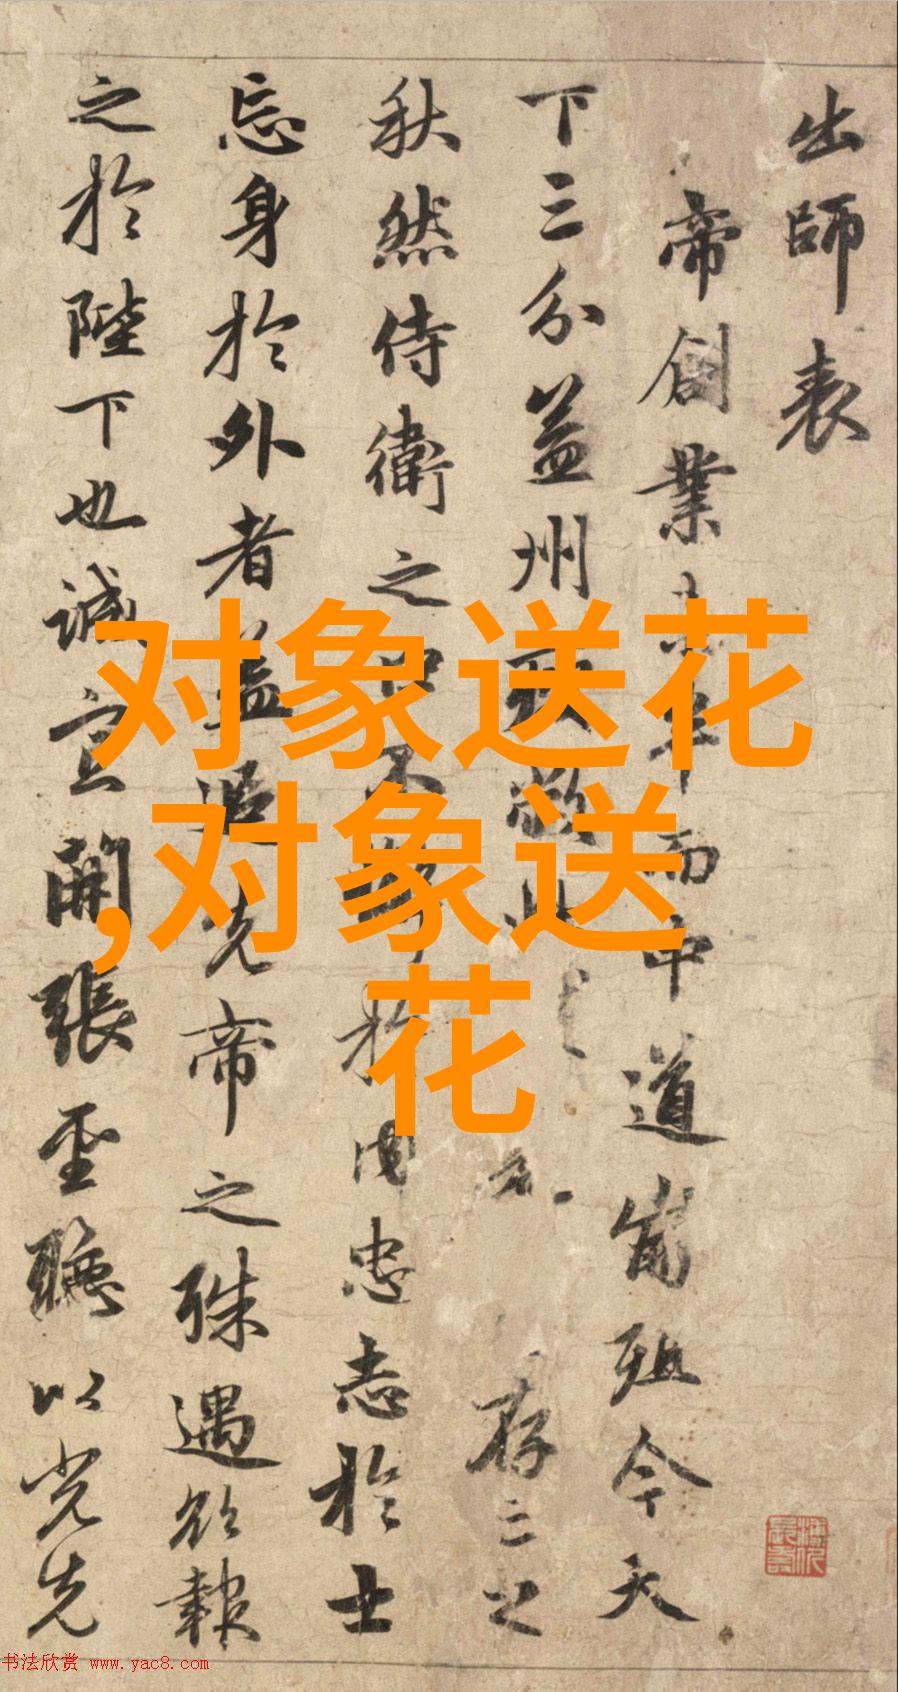 出師表
帝創業未半而中道崩殂今天
下三分益州疲敝此存亡之
秋然侍衛之臣不懈於内忠志於士
忘身於外者盖追先帝之殊遇欲報
之於陛下也誠宜開張聖聽以光先
对象送花
,对象送
花
书法欣赏 www.yac8.com